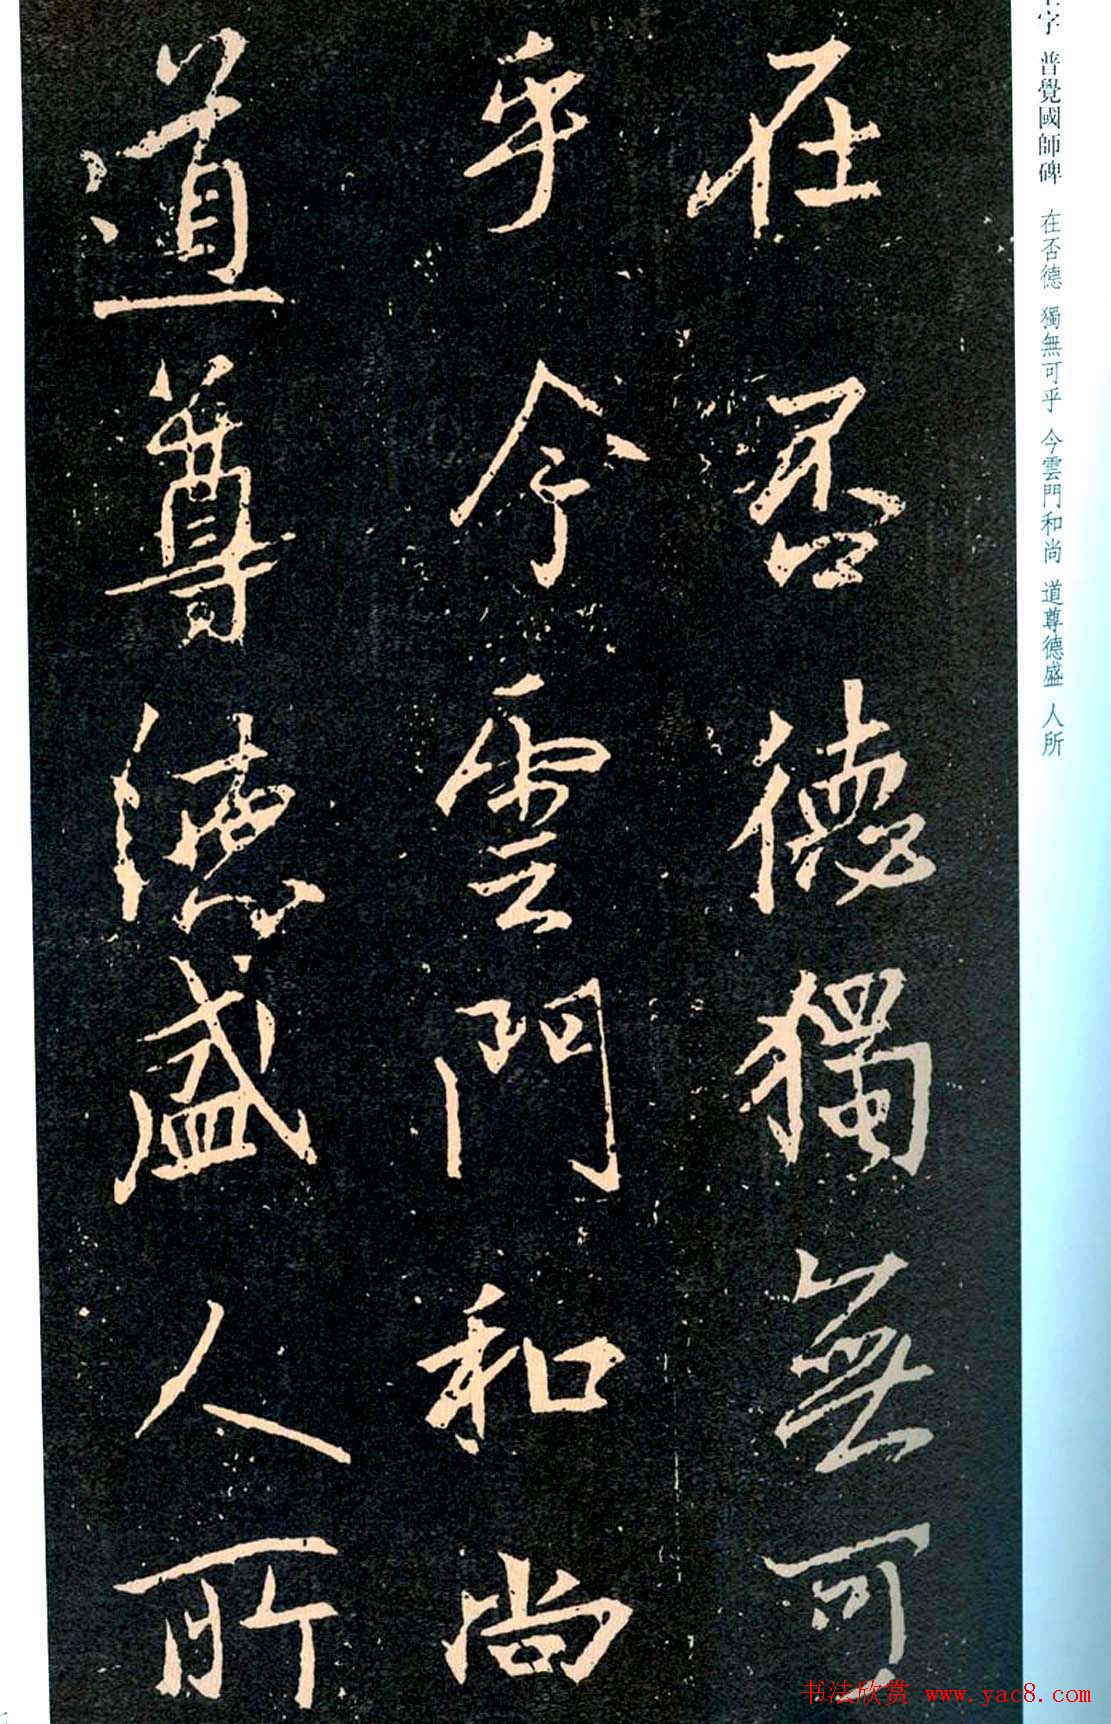 在否德獨無可
乎今雲門和尚
道尊德盛人所
字 普覺國師碑 在否德 獨無可乎 今雲門和尚 道尊德盛 人所
书法欣赏 www.yac8.com